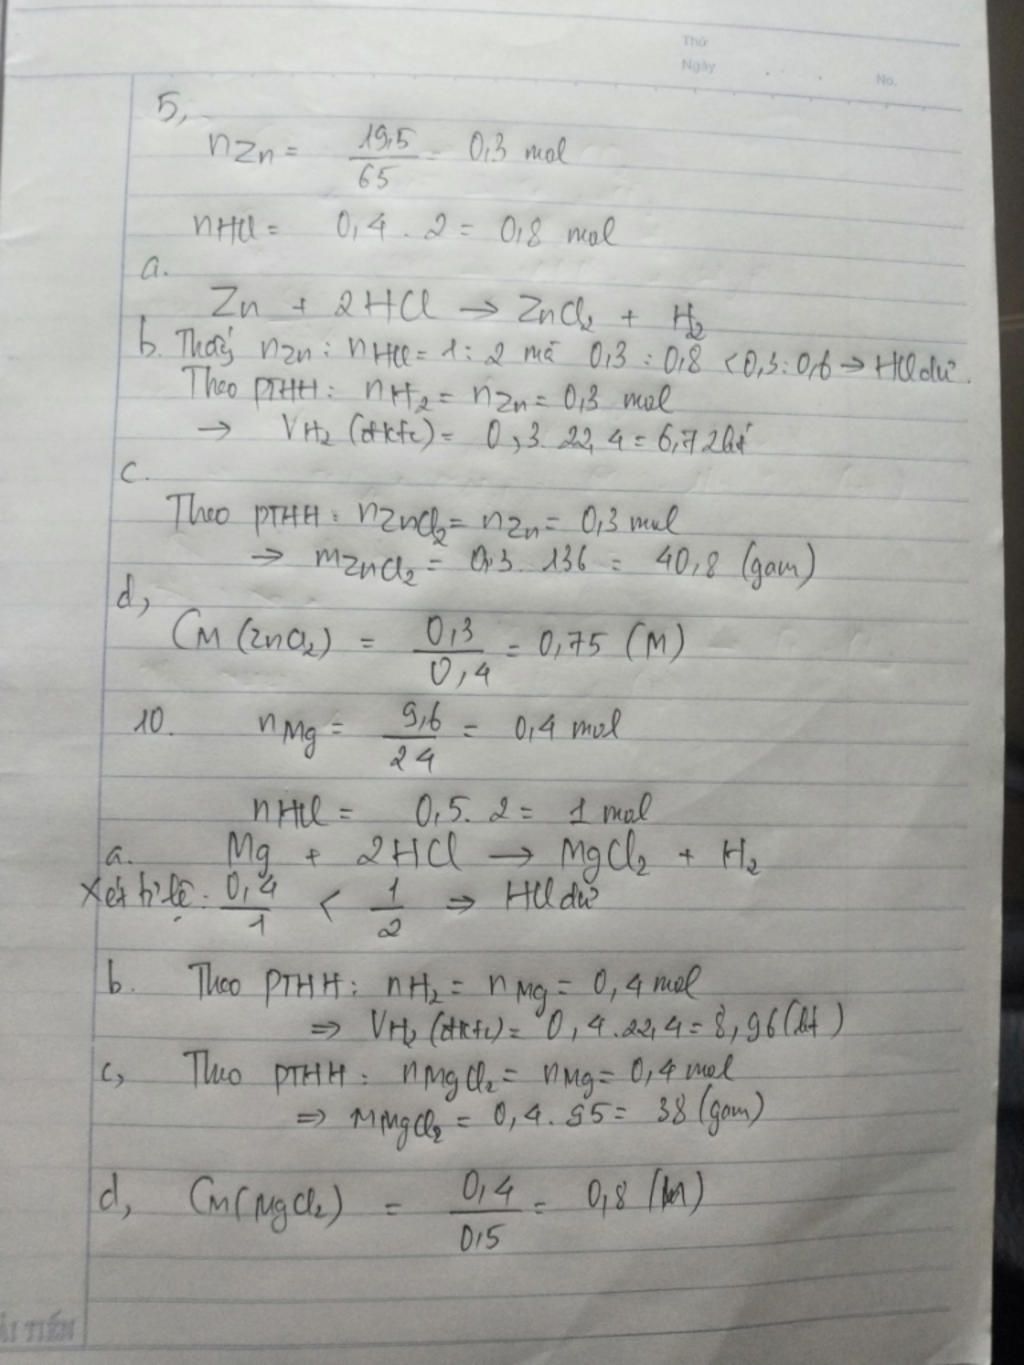 Thứ
Ngày
No.
5,
nZn = 19,5/65 = 0,3 mol
nHCl = 0,4 . 2 = 0,8 mol
a.
Zn + 2HCl → ZnCl₂ + H₂
b. Thấy nZn : nHCl = 1 : 2 mà 0,3 : 0,8 < 0,3 : 0,6 → HCl dư.
Theo PTHH : nH₂ = nZn = 0,3 mol
→ VH₂ (đktc) = 0,3 . 22,4 = 6,72 lít
c.
Theo PTHH : nZnCl₂ = nZn = 0,3 mol
→ mZnCl₂ = 0,3 . 136 = 40,8 (gam)
d,
CM (ZnCl₂) = 0,3/0,4 = 0,75 (M)
10. nMg = 9,6/24 = 0,4 mol
nHCl = 0,5 . 2 = 1 mol
a. Mg + 2HCl → MgCl₂ + H₂
Xét tỉ lệ : 0,4/1 < 1/2 ⇒ HCl dư
b. Theo PTHH : nH₂ = nMg = 0,4 mol
⇒ VH₂ (đktc) = 0,4 . 22,4 = 8,96 (lít)
c, Theo PTHH : nMgCl₂ = nMg = 0,4 mol
⇒ mMgCl₂ = 0,4 . 95 = 38 (gam)
d, CM (MgCl₂) = 0,4/0,5 = 0,8 (M)
ẢI TIẾN